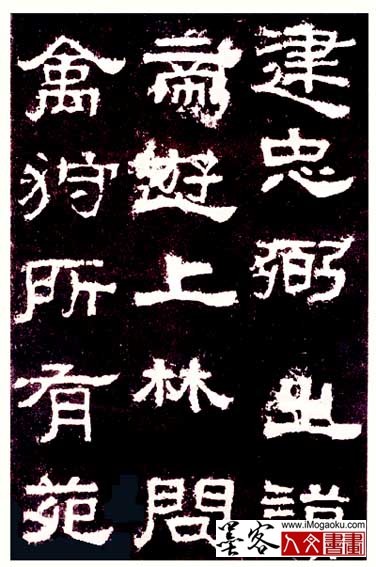 建忠弼之謨
帝遊上林問
禽狩所有苑
墨客
www.iMogaoku.com
人文書畫